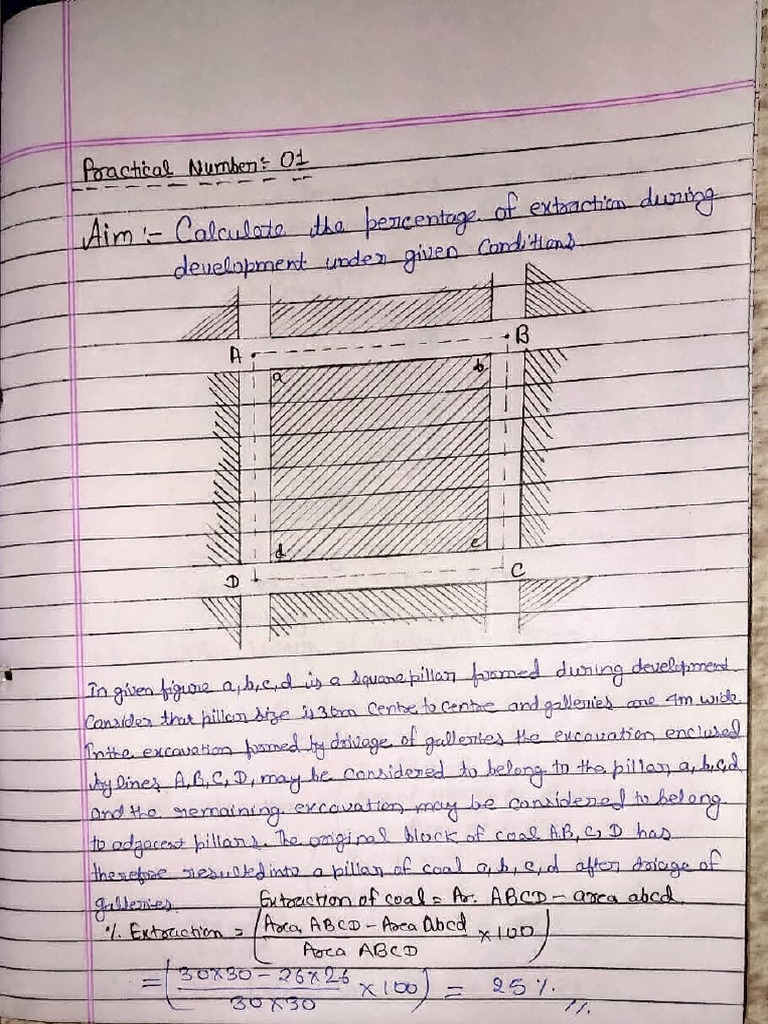 Practical Number: 01
Aim :- Calculate the percentage of extraction during
development under given Conditions
A
B
a
b
d
c
D
C
In given figure a, b, c, d is a square pillar formed during development
Consider that pillar size is 30m Centre to Centre and galleries are 4m wide
In the excavation formed by drivage of galleries the excavation enclosed
by lines A, B, C, D, may be considered to belong to the pillar a, b, c, d
and the remaining excavation may be considered to belong
to adjacent pillars. The original block of coal A,B, C, D has
therefore resulted into a pillar of coal a, b, c, d after driage of
galleries
Extraction of coal = Ar. ABCD - area abcd.
% Extraction = (Area ABCD - Area abcd / Area ABCD × 100)
= (30×30 - 26×26 / 30×30 × 100) = 25 % //.